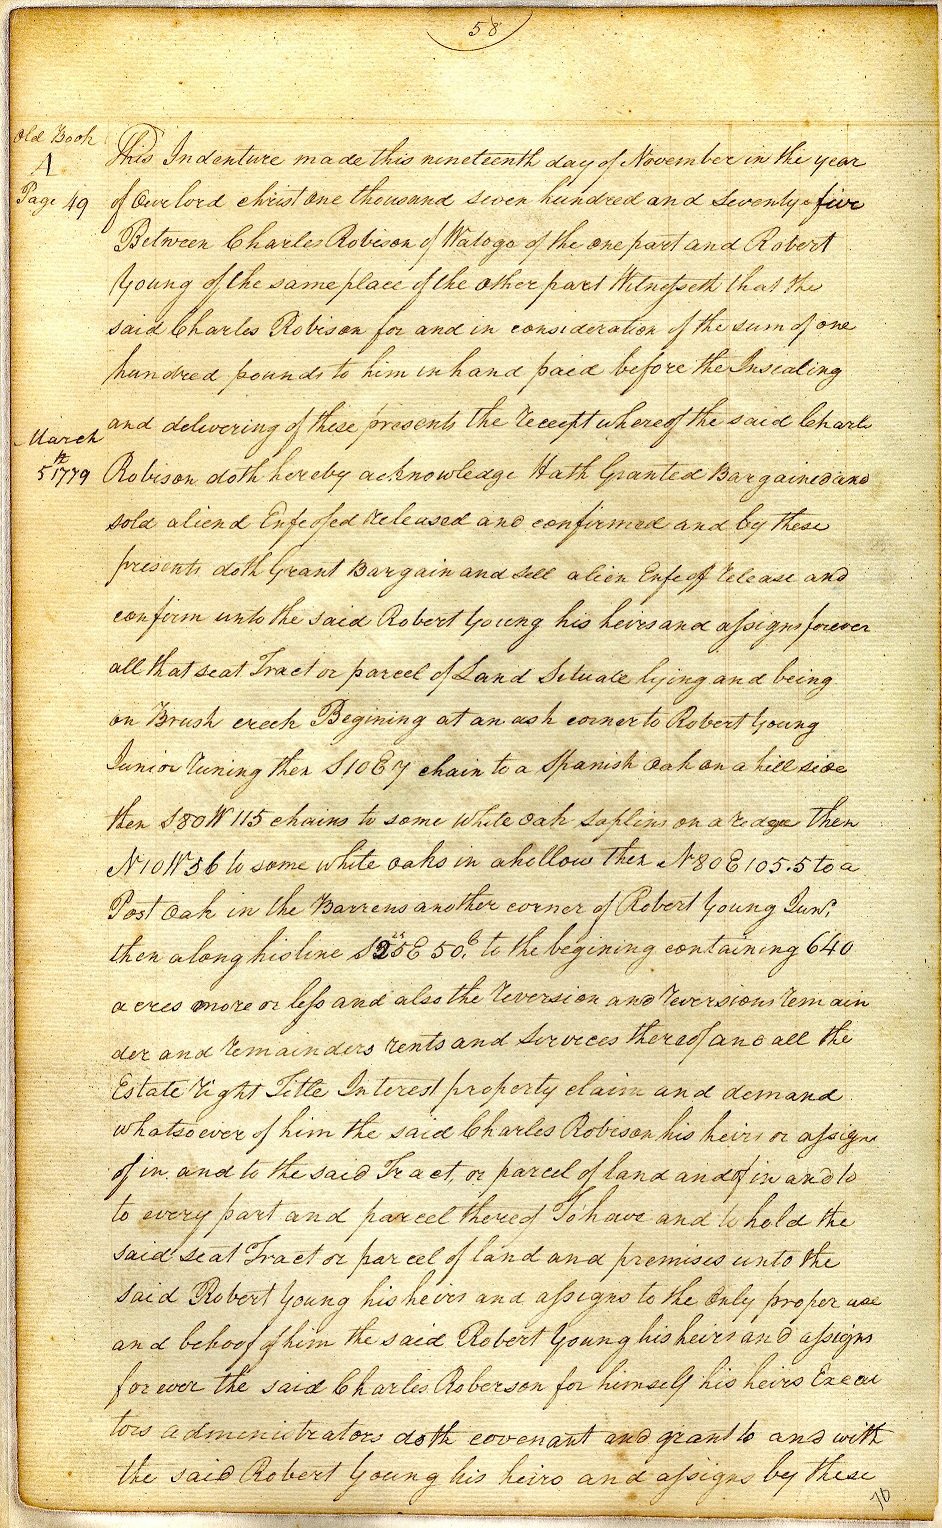 58
Old Book
A
Page 49
This Indenture made this nineteenth day of November in the year
of Our lord christ one thousand seven hundred and seventy five
Between Charles Robison of Watogo of the one part and Robert
Young of the same place of the other part Witnesseth that the
said Charles Robison for and in consideration of the sum of one
hundred pounds to him in hand paid before the Insealing
and delivering of these presents the receipt whereof the said Charls
March
5th 1779
Robison doth hereby acknowledge Hath Granted Bargained and
sold aliend Enfeofed released and confirmed and by these
presents doth Grant Bargain and sell alien Enfeoff release and
confirm unto the said Robert Young his heirs and assigns forever
all that seat Tract or parcel of Land Situate lying and being
on Brush creek Begining at an ash corner to Robert Young
Junior runing then S 10 E 7 chain to a Spanish oak on a hill side
then S 80 W 115 chains to some white oak saplins on a redge then
N 10 W 56 to some white oaks in a hollow then N 80 E 105.5 to a
Post oak in the Barrens another corner of Robert Young Junr.
then along his line S 25 E 50. to the begining containing 640
acres more or less and also the reversion and reversions remain
der and remainders rents and services thereof and all the
Estate right Title Interest property claim and demand
whatsoever of him the said Charles Robison his heirs or assigns
of in and to the said Tract, or parcel of land and of in and to
to every part and parcel thereof To have and to hold the
said seat Tract or parcel of land and premises unto the
said Robert Young his heirs and assigns to the only proper use
and behoof of him the said Robert Young his heirs and assigns
forever the said Charles Roberson for himself his heirs Execu
tors administrators doth covenant and grant to and with
the said Robert Young his heirs and assigns by these